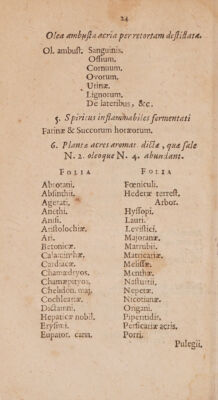 24
Olea ambusta acria per retortam destillata.
Ol. ambust. Sanguinis.
Ossium.
Cornuum.
Ovorum.
Urinæ.
Lignorum.
De lateribus, &c.
5. Spiritus inflammabiles fermentati
Farinæ & Succorum horæorum.
6. Plantæ acres aromat. dictæ, quæ sale
N. 2. oleoque N. 4. abundant.
FOLIA
Abrotani.
Absinthii.
Agerati.
Anethi.
Anisi.
Aristolochiæ.
Ari.
Betonicæ.
Calaminthæ.
Cardiacæ.
Chamædryos.
Chamæpityos.
Chelidon. maj.
Cochleariæ.
Dictamni.
Hepaticæ nobil.
Erysimi.
Eupator. cann.
FOLIA
Fœniculi.
Hederæ terrest.
Arbor.
Hyssopi.
Lauri.
Levistici.
Majoranæ.
Marrubii.
Matricariæ.
Melissæ.
Menthæ.
Nasturtii.
Nepetæ.
Nicotianæ.
Origani.
Piperitidis.
Persicariæ acris.
Porri.
Pulegii.